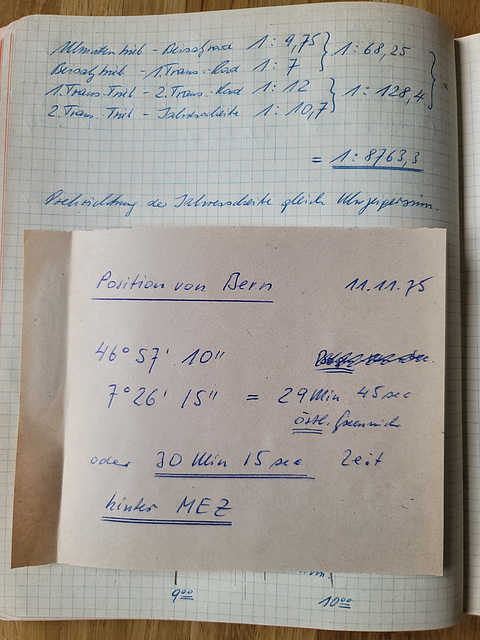 Minutentrieb - Beisatzrad 1 : 9,75
1 : 68,25
Beisatztrieb - 1. Trans.-Rad 1 : 7
1. Trans.-Trieb - 2. Trans.-Rad 1 : 12
1 : 128,4
2. Trans.-Trieb - Jahresscheibe 1 : 10,7
=
= 1 : 8763,3
Drehrichtung der Jahresscheibe gleich Uhrzeigersinn.
Position von Bern 11.11.75
46° 57' 10"
7° 26' 15" = 29 Min 45 sec
östl. Greenwich
oder 30 Min 15 sec Zeit
hinter MEZ
9⁰⁰
10⁰⁰